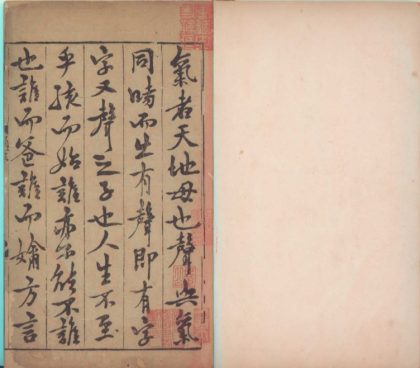 氣者天地母也聲與氣
同時而生有聲即有字
字又聲之子也人生不至
乎孩而始誰亦不能不誰
也誰而爸誰而嬭方言